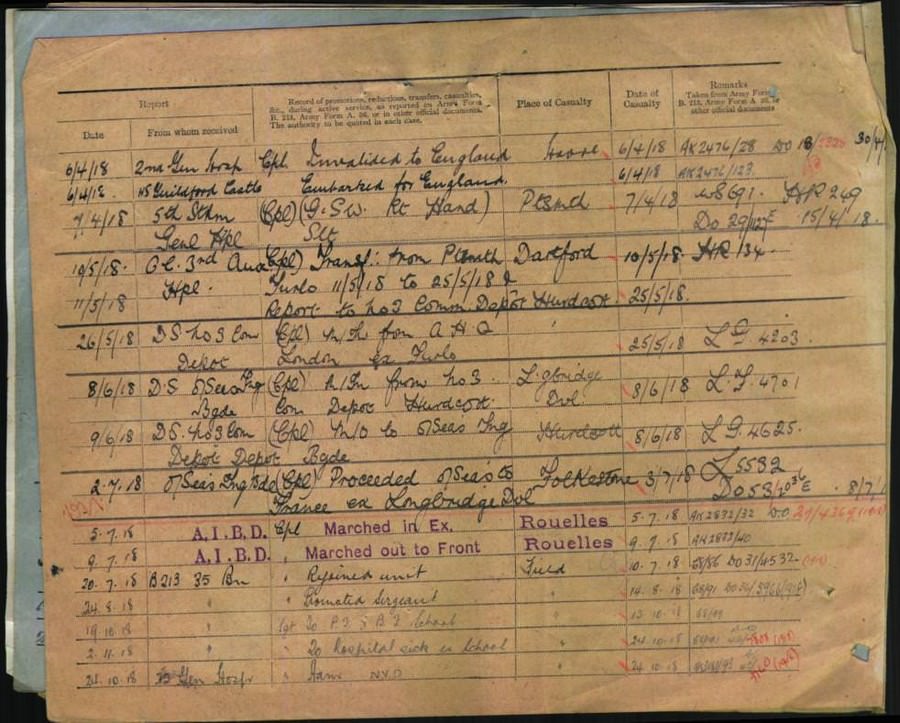 Report
Record of promotions, reductions, transfers, casualties,
&c., during active service, as reported on Army Form
B. 213, Army Form A. 36, or in other official documents.
The authority to be quoted in each case.
Place of Casualty
Date of
Casualty
Remarks
Taken from Army Form
B. 213, Army Form A. 36, or
other official documents
Date
From whom received
6/4/18 2nd Gen Hosp Cpl Invalided to England Havre 6/4/18 AK2476/28 DO 18/ 30/4/
6/4/18. HS Guildford Castle Embarked for England. 6/4/18 AK2476/123
7/4/18 5th Sthn (Cpl) (G.S.W. Rt Hand) Ptsmth 7/4/18 W8691. HR 249
Genl Hpl Slt Do 29/ 15/4/18.
10/5/18. O C. 3rd Aux (Cpl) Transf: from Ptsmth Dartford 10/5/18. HR 134
11/5/18 Hpl. Furlo 11/5/18 to 25/5/18 &
Report to No 3 Comm. Depot Hurdcott 25/5/18.
26/5/18 DS No 3 Com (Cpl) M/In from A.H.Q 25/5/18 L.G. 4203.
Depot London ex Furlo
8/6/18 D.S O/Seas Tng (Cpl) M/In from No 3 L.gbridge 8/6/18 L.F. 4701
Bgde Com Depot Hurdcott. Dvl
9/6/18 DS. No 3 Com (Cpl) M/O to O/Seas Tng Hurdcott 8/6/18 L G. 4625.
Depot Depot Bgde
2-7.18 O/Seas Tng Bde (Cpl) Proceeded O/Seas to Folkestone 3/7/18 L 5582
France ex Longbridge Dvl
5.7.18 A.I.B.D. Cpl Marched in Ex. Rouelles 5.7.18 AK2832/32 DO
9.7.18 A.I.B.D. " Marched out to Front Rouelles 9.7.18 AK2833/40
20.7.18 B213 35 Bn " Rejoined unit Field 10.7.18 Do 31/4532
24.8.18 " " Promoted Sergeant " 14.8.18
19.10.18 " Sgt To P.T. & B.F. School " 13.10.18
2.11.18 " " To Hospital sick ex School " 24.10.18
24.10.18 Gen Hosp " Adm NYD " 24.10.18